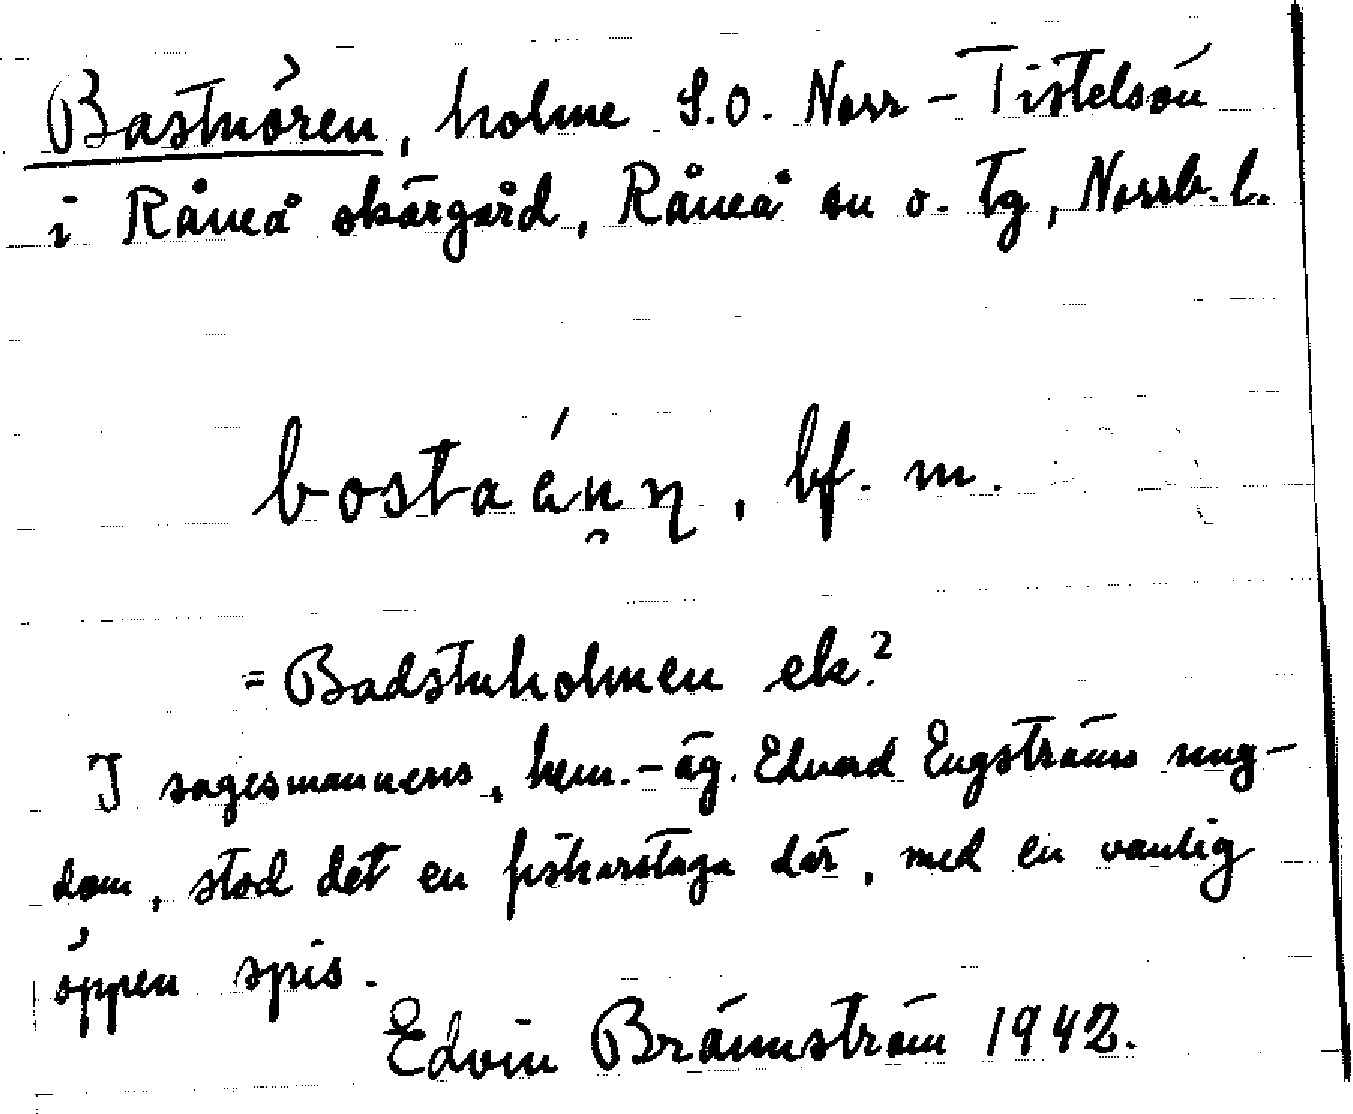 Bastuören, holme S.O. Norr-Tistelsön
i Råneå skärgård, Råneå sn o. tg, Norrb. l.
bf. m.
= Badstuholmen ek.?
I sagesmannens, hem.-äg. Edvard Engströms ung-
dom, stod det en fiskarstuga där, med en vanlig
öppen spis.
Edvin Brännström 1942.